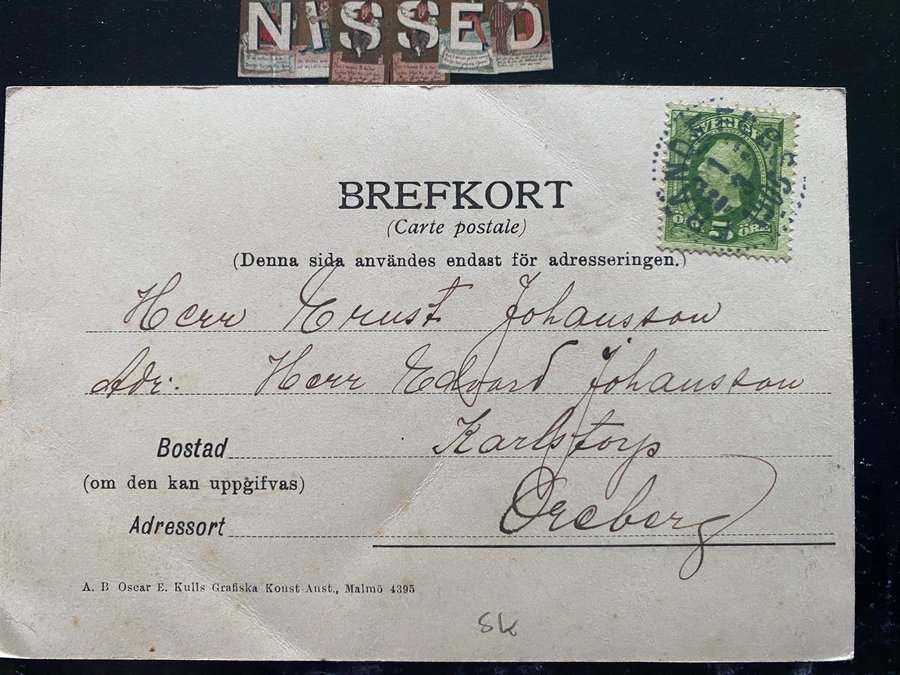 NISSED
SVERIGE
5
ÖRE
BREFKORT
(Carte postale)
(Denna sida användes endast för adresseringen.)
Herr Ernst Johansson
Adr: Herr Edvard Johansson
Bostad Karlstorp
(om den kan uppgifvas)
Adressort Oreberg
A. B Oscar E. Kulls Grafiska Konst-Anst., Malmö 4395
SK